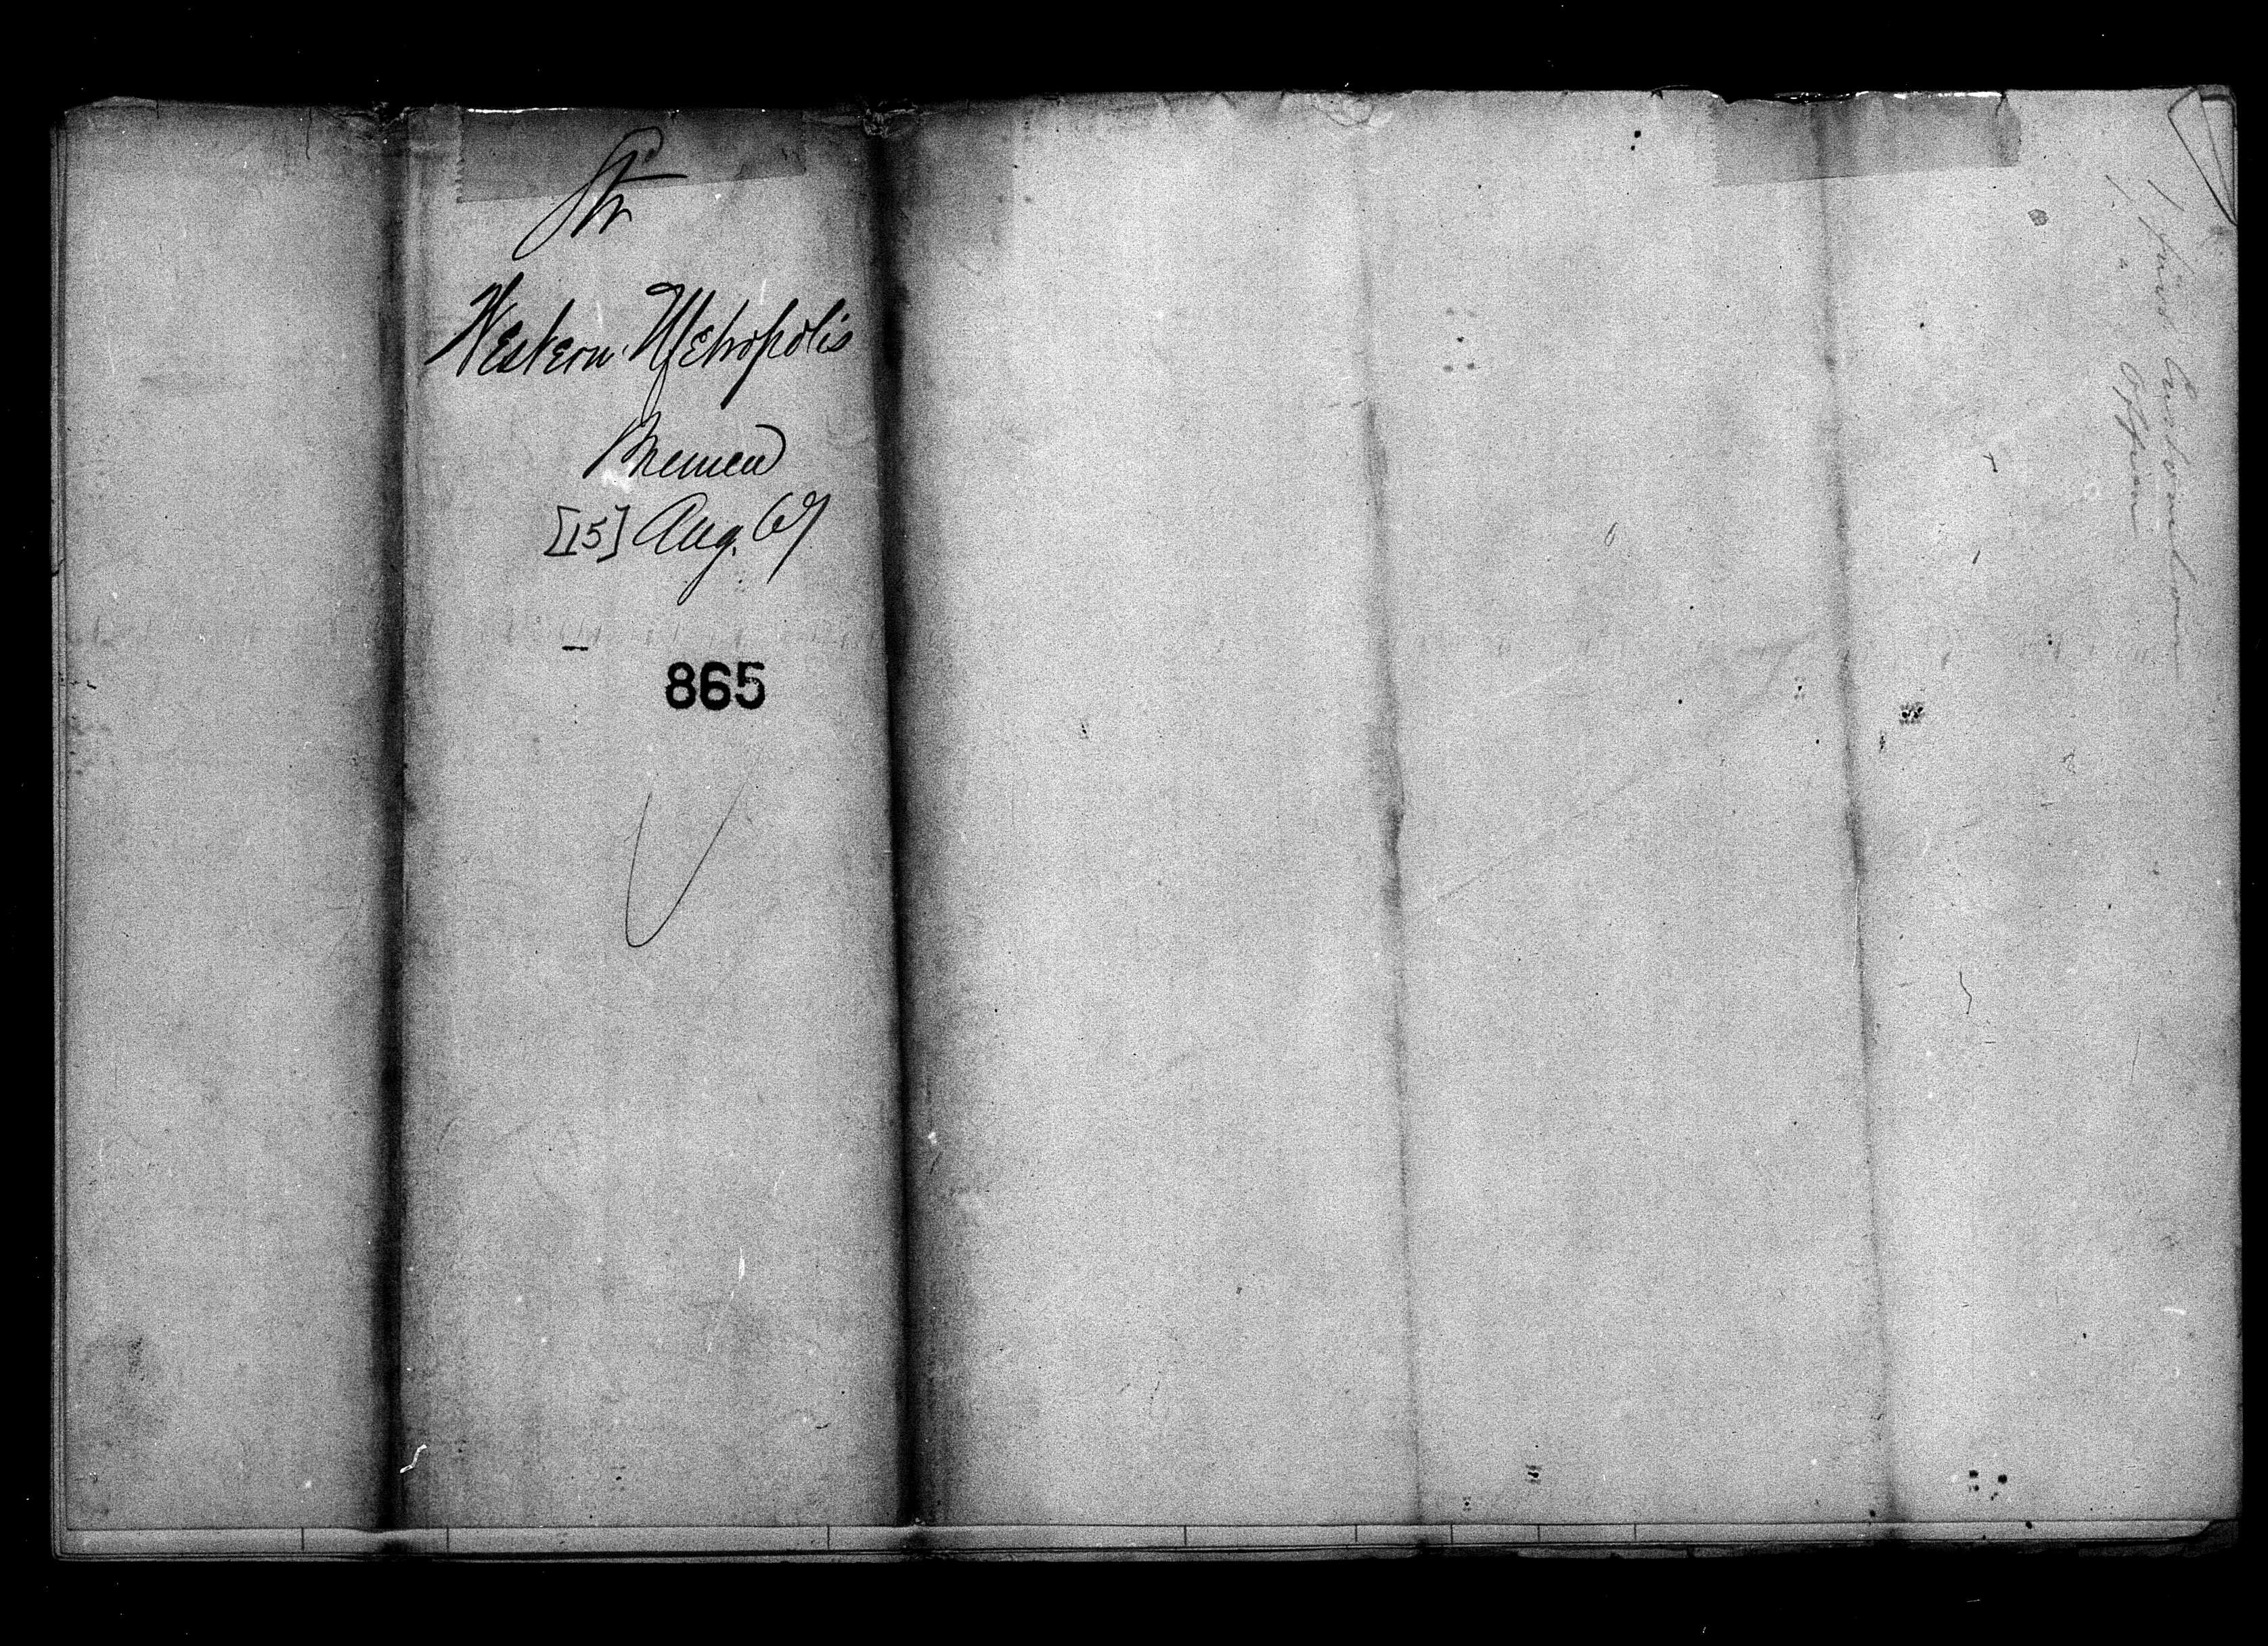 Str
Western Metropolis
Bremen
[15] Aug. 67
865